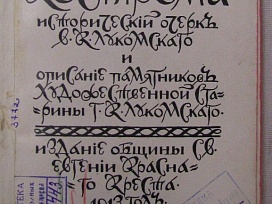 Кострома
историческiй очеркъ
В. К. Лукомскаго
и
описанiе памятниковъ
художественной ста-
рины Г. К. Лукомскаго.
изданiе общины св.
евгенiи красна-
го креста.
1913 годъ.
3772
ТЕКА